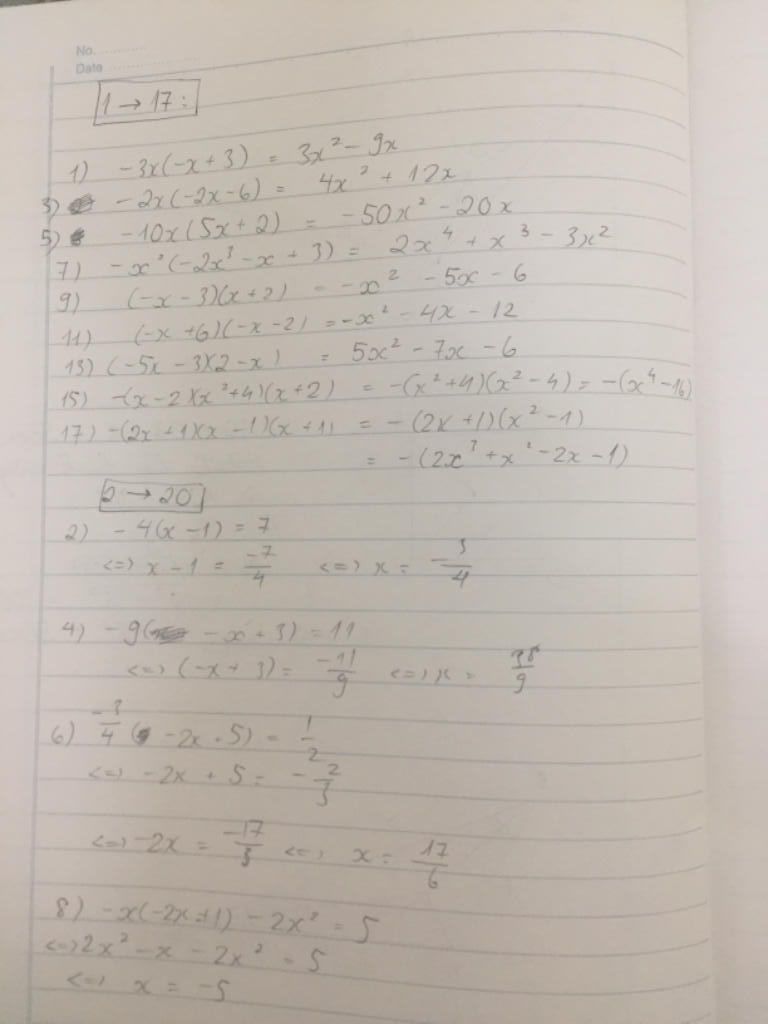 No. ............
Date ....................
1 → 17 :
1) -3x(-x + 3) = 3x² - 9x
3) -2x(-2x-6) = 4x² + 12x
5) -10x(5x + 2) = -50x² - 20x
7) -x²(-2x³ - x + 3) = 2x⁴ + x³ - 3x²
9) (-x - 3)(x+2) = -x² - 5x - 6
11) (-x + 6)(-x - 2) = -x² - 4x - 12
13) (-5x - 3)(2 - x) = 5x² - 7x - 6
15) -(x - 2)(x²+4)(x + 2) = -(x²+4)(x² - 4) = -(x⁴ - 16)
17) -(2x + 1)(x - 1)(x + 1) = - (2x + 1)(x² - 1)
= - (2x³ + x² - 2x - 1)
2 → 20
2) - 4(x - 1) = 7
<=> x - 1 = -7/4 <=> x = -3/4
4) - 9( - x + 3) = 11
<=> (-x + 3) = -11/9 <=> x = 38/9
6) -3/4 ( -2x + 5) = 1/2
<=> -2x + 5 = - 2/3
<=> -2x = -17/3 <=> x = 17/6
8) -x(-2x+1) - 2x² = 5
<=> 2x² - x - 2x² = 5
<=> x = -5